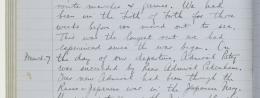 route marches & games. We had
been in the Firth of Forth for three
weeks before we went out to sea.
This was the longest rest we had
experienced since the war began. On
March 7 the day of our departure, Admiral
was succeeded by Rear Admiral
Our new Admiral had been through the
Russo-Japanese war in the Japanese Navy.